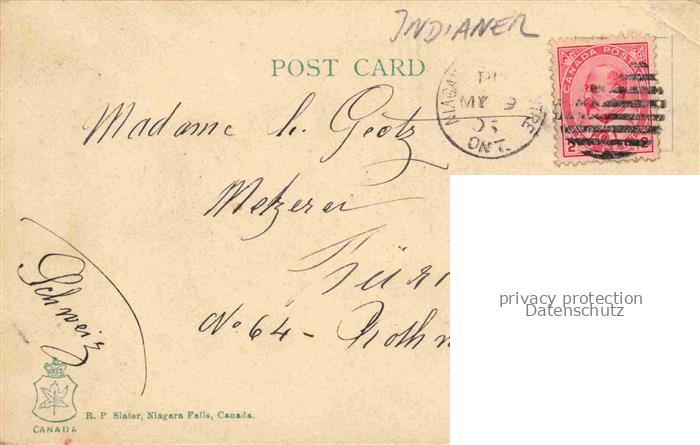 INDIANER
POST CARD
CANADA POSTAGE
PL
MY 9
05
ONT.
Madame L. Geotz
Metzerei
Züri
No 64 - Rothm
Schweiz
privacy protection
Datenschutz
CANADA
R. P. Slater, Niagara Falls, Canada.